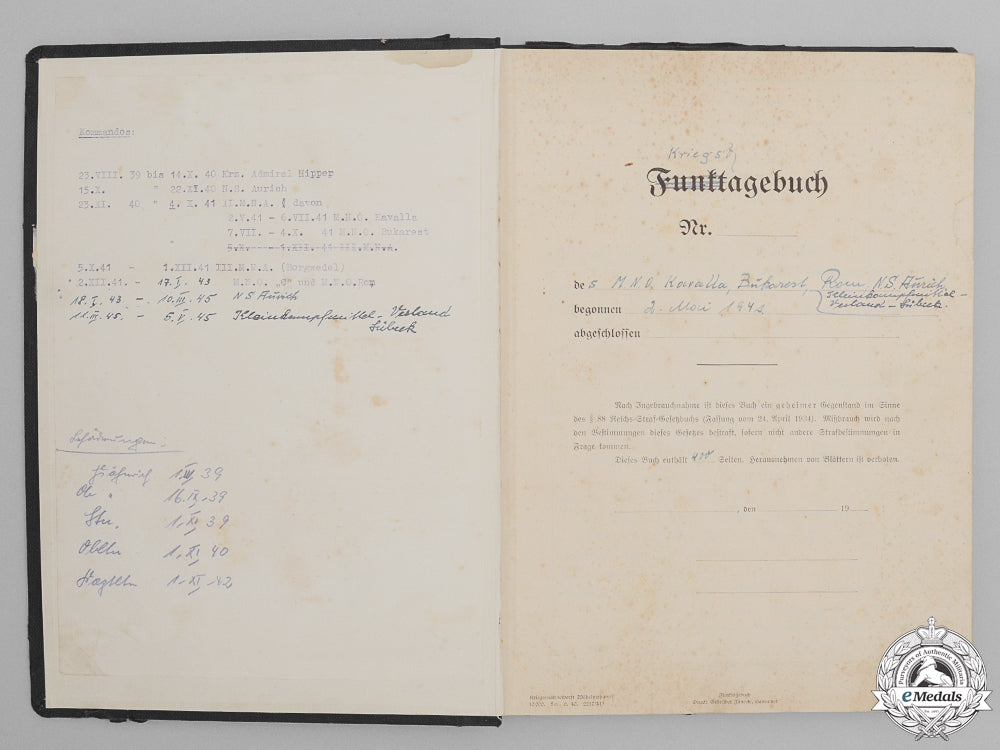 Kommandos:
23.VIII. 39 bis 14.X. 40 Krz. Admiral Hipper
15.X. " 22.XI.40 N.S. Aurich
23.XI. 40 " 4. X. 41 II.M.N.A. ( davon
2.V.41 - 6.VII.41 M.N.O. Kavalla
7.VII. - 4.X. 41 M.N.O. Bukarest
5.X. - 1.XII. 41 III.M.N.A.
5.X.41 - 1.XII.41 III.M.N.A. (Borgwedel)
2.XII.41. - 17.I. 43 M.N.O. "G" und M.N.O.Rom
18.I. 43 - 10.III. 45 NS Aurich
11.III.45. - 5.V. 45 Kleinkampfmittel - Verband
Lübeck
Beförderungen:
Fähnrich 1.III 39
Ob " 16.IX.39
Ltn. 1.XI 39
Obltn 1.XI 40
Kaptltn 1.XI.42
Kriegst
Funktagebuch
Nr.
des M.N.O. Kavalla, Bukarest, Rom, N.S. Aurich
Kleinkampfmittel -
Verband - Lübeck.
begonnen 2. Mai 1941
abgeschlossen
Nach Ingebrauchnahme ist dieses Buch ein geheimer Gegenstand im Sinne
des § 88 Reichs-Straf-Gesetzbuchs (Fassung vom 24. April 1934). Mißbrauch wird nach
den Bestimmungen dieses Gesetzes bestraft, sofern nicht andere Strafbestimmungen in
Frage kommen.
Dieses Buch enthält 400 Seiten. Herausnehmen von Blättern ist verboten.
, den 19
Kriegsmarinewerft Wilhelmshaven
Funktagebuch
Druck: Gebrüder Jänecke, Hannover
Purveyors of Authentic Militaria
eMedals